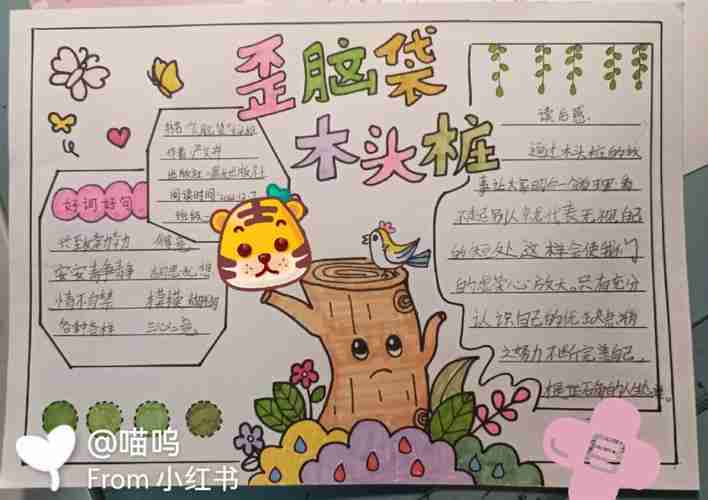 歪脑袋
木头桩
书名
作者:严文井
出版社:
阅读时间:2022.12.7
班级
好词好句
安安静静 胡思乱想
情不自禁 模模糊糊
各种各样 三心二意。
读后感:
通过木头桩的故
事让大家明白一个道理:看
不起别人就代表无视自己
的短处,这样会使我们
的虚荣心放大。只有充分
认识自己的优缺点,将
之努力不断完善自己,
@喵呜
From 小红书